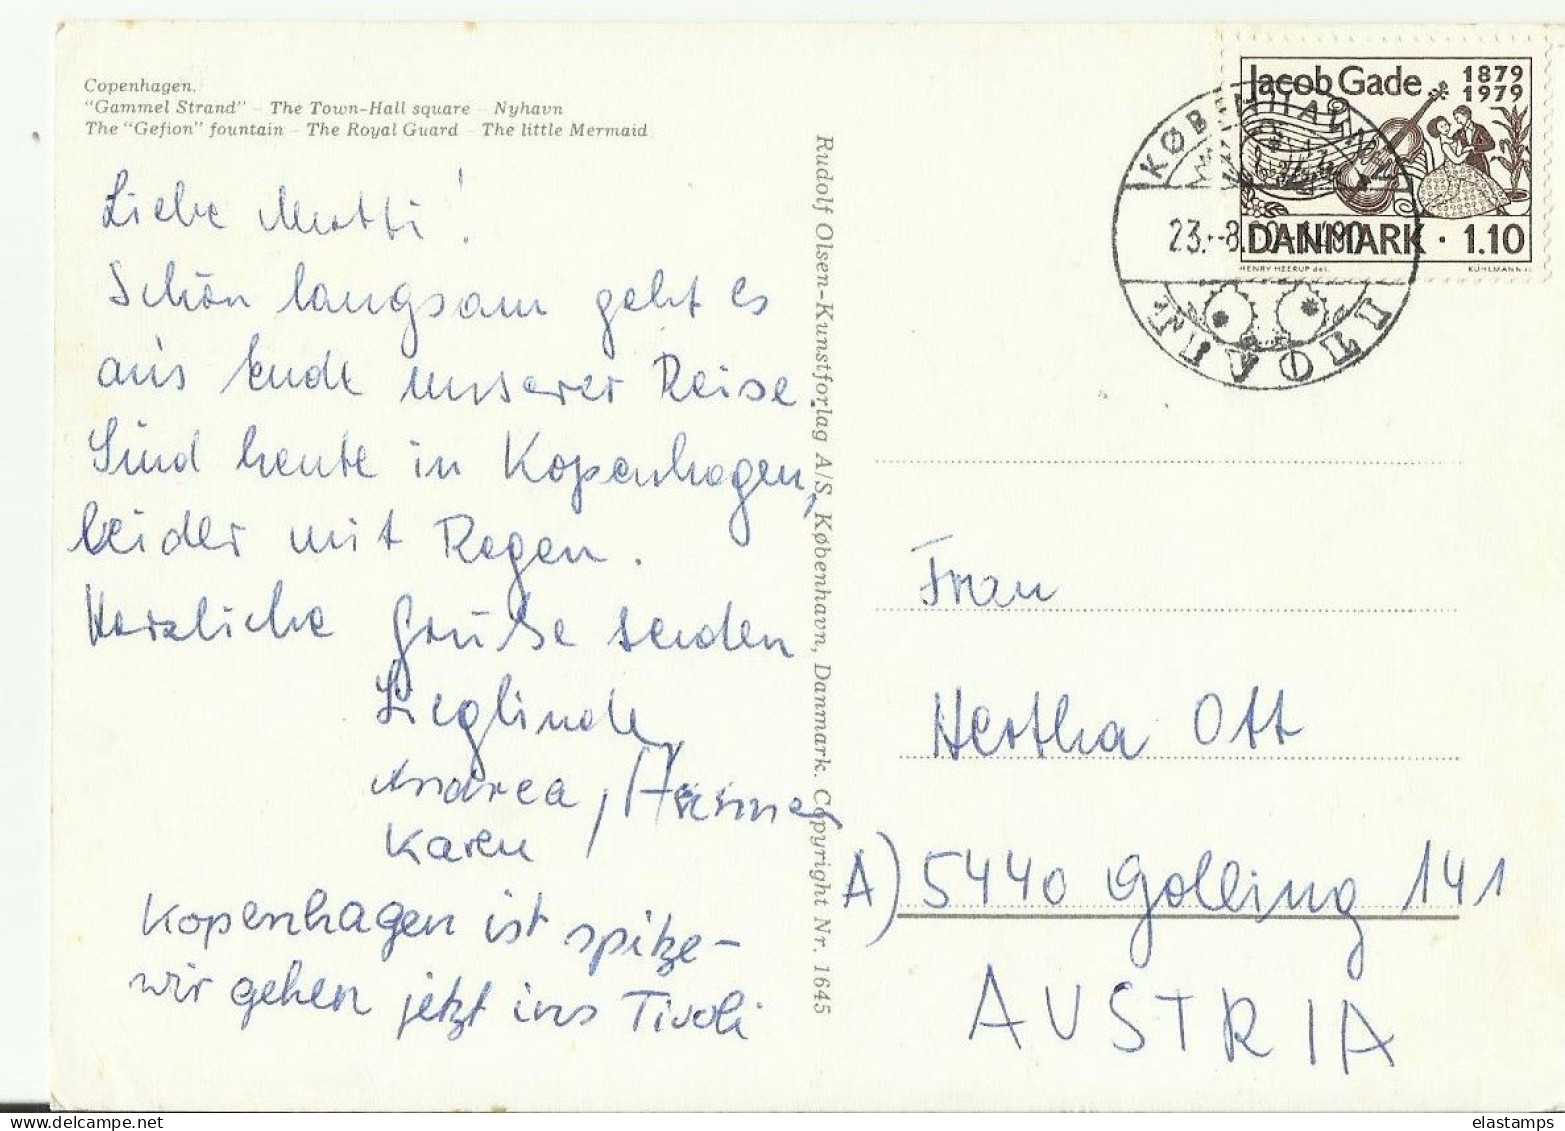 Copenhagen.
"Gammel Strand" – The Town-Hall square – Nyhavn
The "Gefion" fountain – The Royal Guard – The little Mermaid
Liebe Mutti!
Schön langsam geht es
ans Ende unserer Reise.
Sind heute in Kopenhagen,
leider mit Regen.
Herzliche Grüße senden
Sieglinde,
Andrea,
Karen
Kopenhagen ist spitze –
wir gehen jetzt ins Tivoli
Rudolf Olsen-Kunstforlag A/S, København, Danmark. Copyright Nr. 1645
Jacob Gade 1879
1979
DANMARK · 1.10
HENRY HEERUP del. KÜHLMANN sc.
KØBENHAVN
23.-8.
TIVOLI
Frau
Hertha Ott
A) 5440 Golling 141
AUSTRIA
elastamps
www.delcampe.net